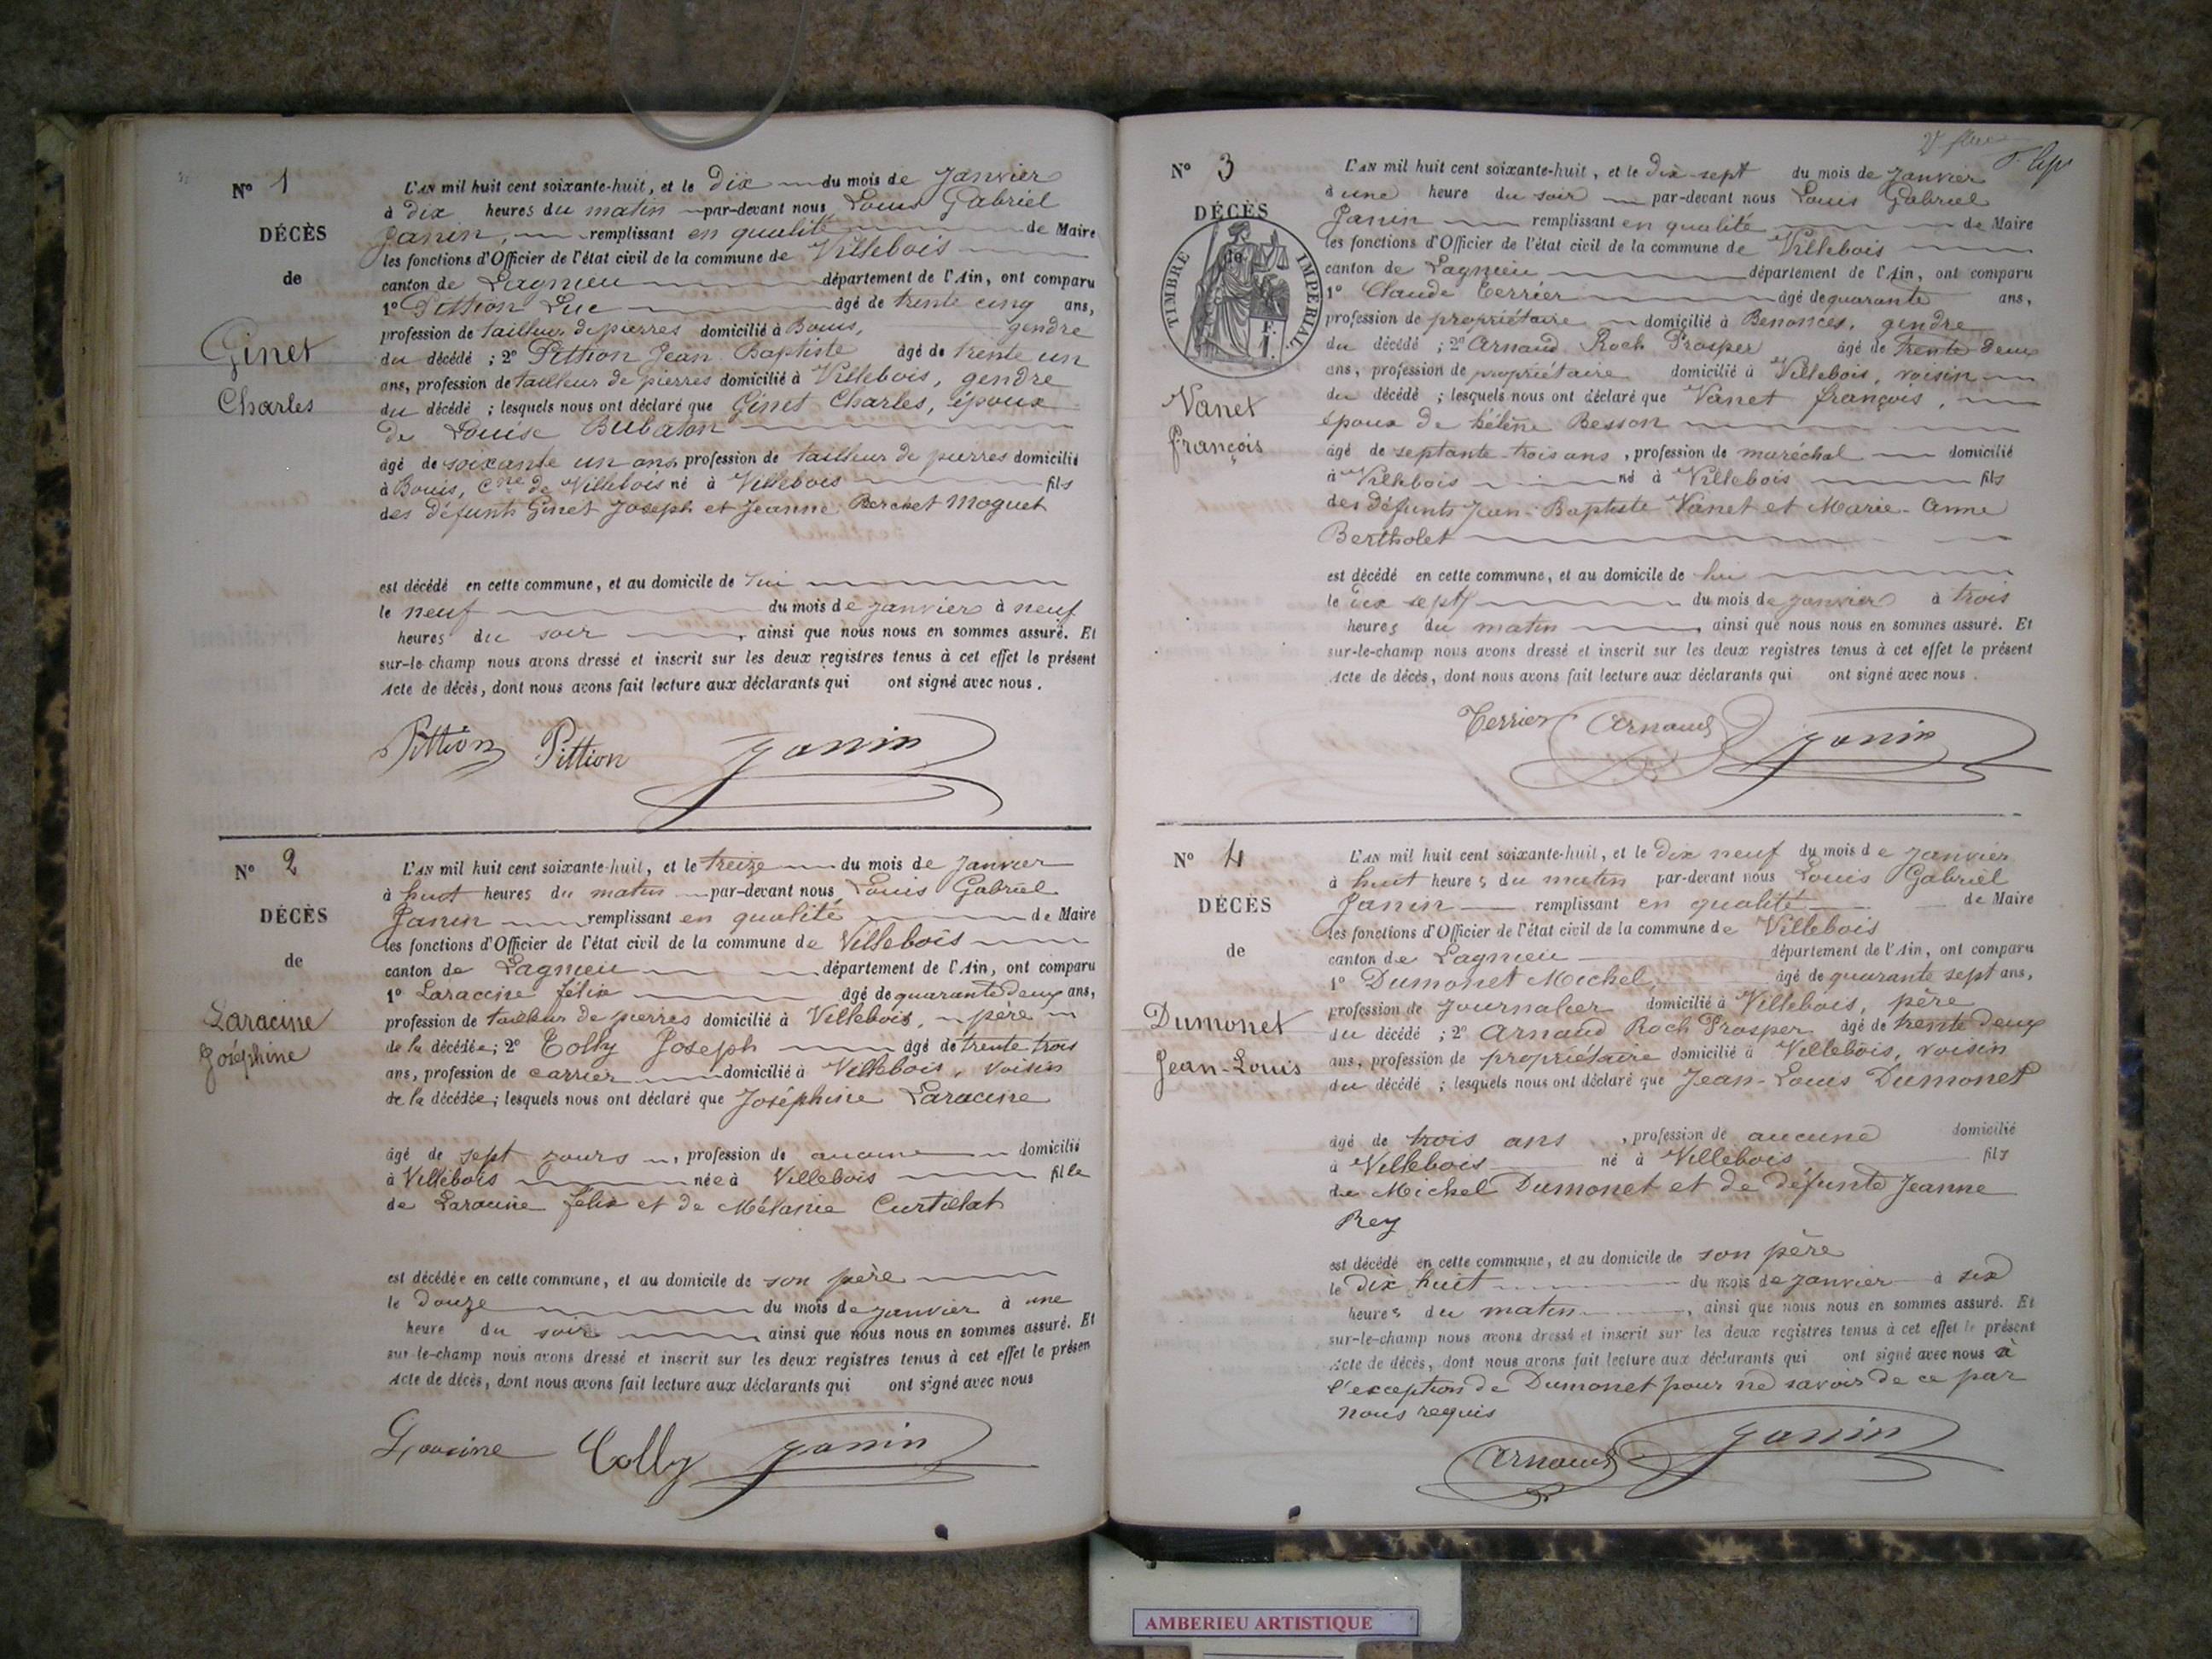 N° 1
DÉCÈS
de
Ginet
Charles
L'AN mil huit cent soixante-huit, et le dix du mois de Janvier
à dix heures du matin par-devant nous Louis Gabriel
Janin, remplissant en qualité de Maire
les fonctions d'Officier de l'état civil de la commune de Villebois
canton de Lagnieu département de l'Ain, ont comparu
1° Pittion Luc âgé de trente cinq ans,
profession de tailleur de pierres domicilié à Bouis, gendre
du décédé ; 2° Pittion Jean Baptiste âgé de trente un
ans, profession de tailleur de pierres domicilié à Villebois, gendre
du décédé ; lesquels nous ont déclaré que Ginet Charles, époux
de Louise Bubaton
âgé de soixante un ans, profession de tailleur de pierres domicilié
à Bouis, Cne de Villebois né à Villebois fils
des défunts Ginet Joseph et Jeanne Berchet Moguet
est décédé en cette commune, et au domicile de lui
le neuf du mois de janvier à neuf
heures du soir, ainsi que nous nous en sommes assuré. Et
sur-le-champ nous avons dressé et inscrit sur les deux registres tenus à cet effet le présent
Acte de décès, dont nous avons fait lecture aux déclarants qui ont signé avec nous.
Pittion Pittion Janin
N° 2
DÉCÈS
de
Laracine
Joséphine
L'AN mil huit cent soixante-huit, et le treize du mois de Janvier
à huit heures du matin par-devant nous Louis Gabriel
Janin remplissant en qualité de Maire
les fonctions d'Officier de l'état civil de la commune de Villebois
canton de Lagnieu département de l'Ain, ont comparu
1° Laracine félix âgé de quarante deux ans,
profession de tailleur de pierres domicilié à Villebois, père
de la décédée; 2° Colly Joseph âgé de trente trois
ans, profession de carrier domicilié à Villebois, voisin
de la décédée; lesquels nous ont déclaré que Joséphine Laracine
âgé de sept jours, profession de aucune domicilié
à Villebois née à Villebois fille
de Laracine félix et de Mélanie Curtillat
est décédée en cette commune, et au domicile de son père
le douze du mois de janvier à une
heure du soir, ainsi que nous nous en sommes assuré. Et
sur-le-champ nous avons dressé et inscrit sur les deux registres tenus à cet effet le présen
Acte de décès, dont nous avons fait lecture aux déclarants qui ont signé avec nous
Laracine Colly Janin
N° 3
DÉCÈS
de
TIMBRE IMPÉRIAL
Vanet
françois
L'AN mil huit cent soixante-huit, et le dix-sept du mois de Janvier
à une heure du soir par-devant nous Louis Gabriel
Janin remplissant en qualité de Maire
les fonctions d'Officier de l'état civil de la commune de Villebois
canton de Lagnieu département de l'Ain, ont comparu
1° Claude Terrier âgé de quarante ans,
profession de propriétaire domicilié à Benonces, gendre
du décédé ; 2° Arnaud Roch Prosper âgé de trente deux
ans, profession de propriétaire domicilié à Villebois, voisin
du décédé ; lesquels nous ont déclaré que Vanet françois,
époux de hélène Besson
âgé de septante-trois ans, profession de maréchal domicilié
à Villebois né à Villebois fils
des défunts Jean-Baptiste Vanet et Marie-Anne
Bertholet
est décédé en cette commune, et au domicile de lui
le dix sept du mois de janvier à trois
heures du matin, ainsi que nous nous en sommes assuré. Et
sur-le-champ nous avons dressé et inscrit sur les deux registres tenus à cet effet le présent
Acte de décès, dont nous avons fait lecture aux déclarants qui ont signé avec nous.
Terrier Arnaud Janin
N° 4
DÉCÈS
de
Dumonet
Jean-Louis
L'AN mil huit cent soixante-huit, et le dix neuf du mois de Janvier
à huit heures du matin par-devant nous Louis Gabriel
Janin remplissant en qualité de Maire
les fonctions d'Officier de l'état civil de la commune de Villebois
canton de Lagnieu département de l'Ain, ont comparu
1° Dumonet Michel âgé de quarante sept ans,
profession de Journalier domicilié à Villebois, père
du décédé ; 2° Arnaud Roch Prosper âgé de trente deux
ans, profession de propriétaire domicilié à Villebois, voisin
du décédé ; lesquels nous ont déclaré que Jean-Louis Dumonet
âgé de trois ans, profession de aucune domicilié
à Villebois né à Villebois fils
de Michel Dumonet et de défunte Jeanne
Rey
est décédé en cette commune, et au domicile de son père
le dix huit du mois de janvier à six
heures du matin, ainsi que nous nous en sommes assuré. Et
sur-le-champ nous avons dressé et inscrit sur les deux registres tenus à cet effet le présent
Acte de décès, dont nous avons fait lecture aux déclarants qui ont signé avec nous à
l'exception de Dumonet pour ne savoir de ce par
nous requis
Arnaud Janin
AMBERIEU ARTISTIQUE